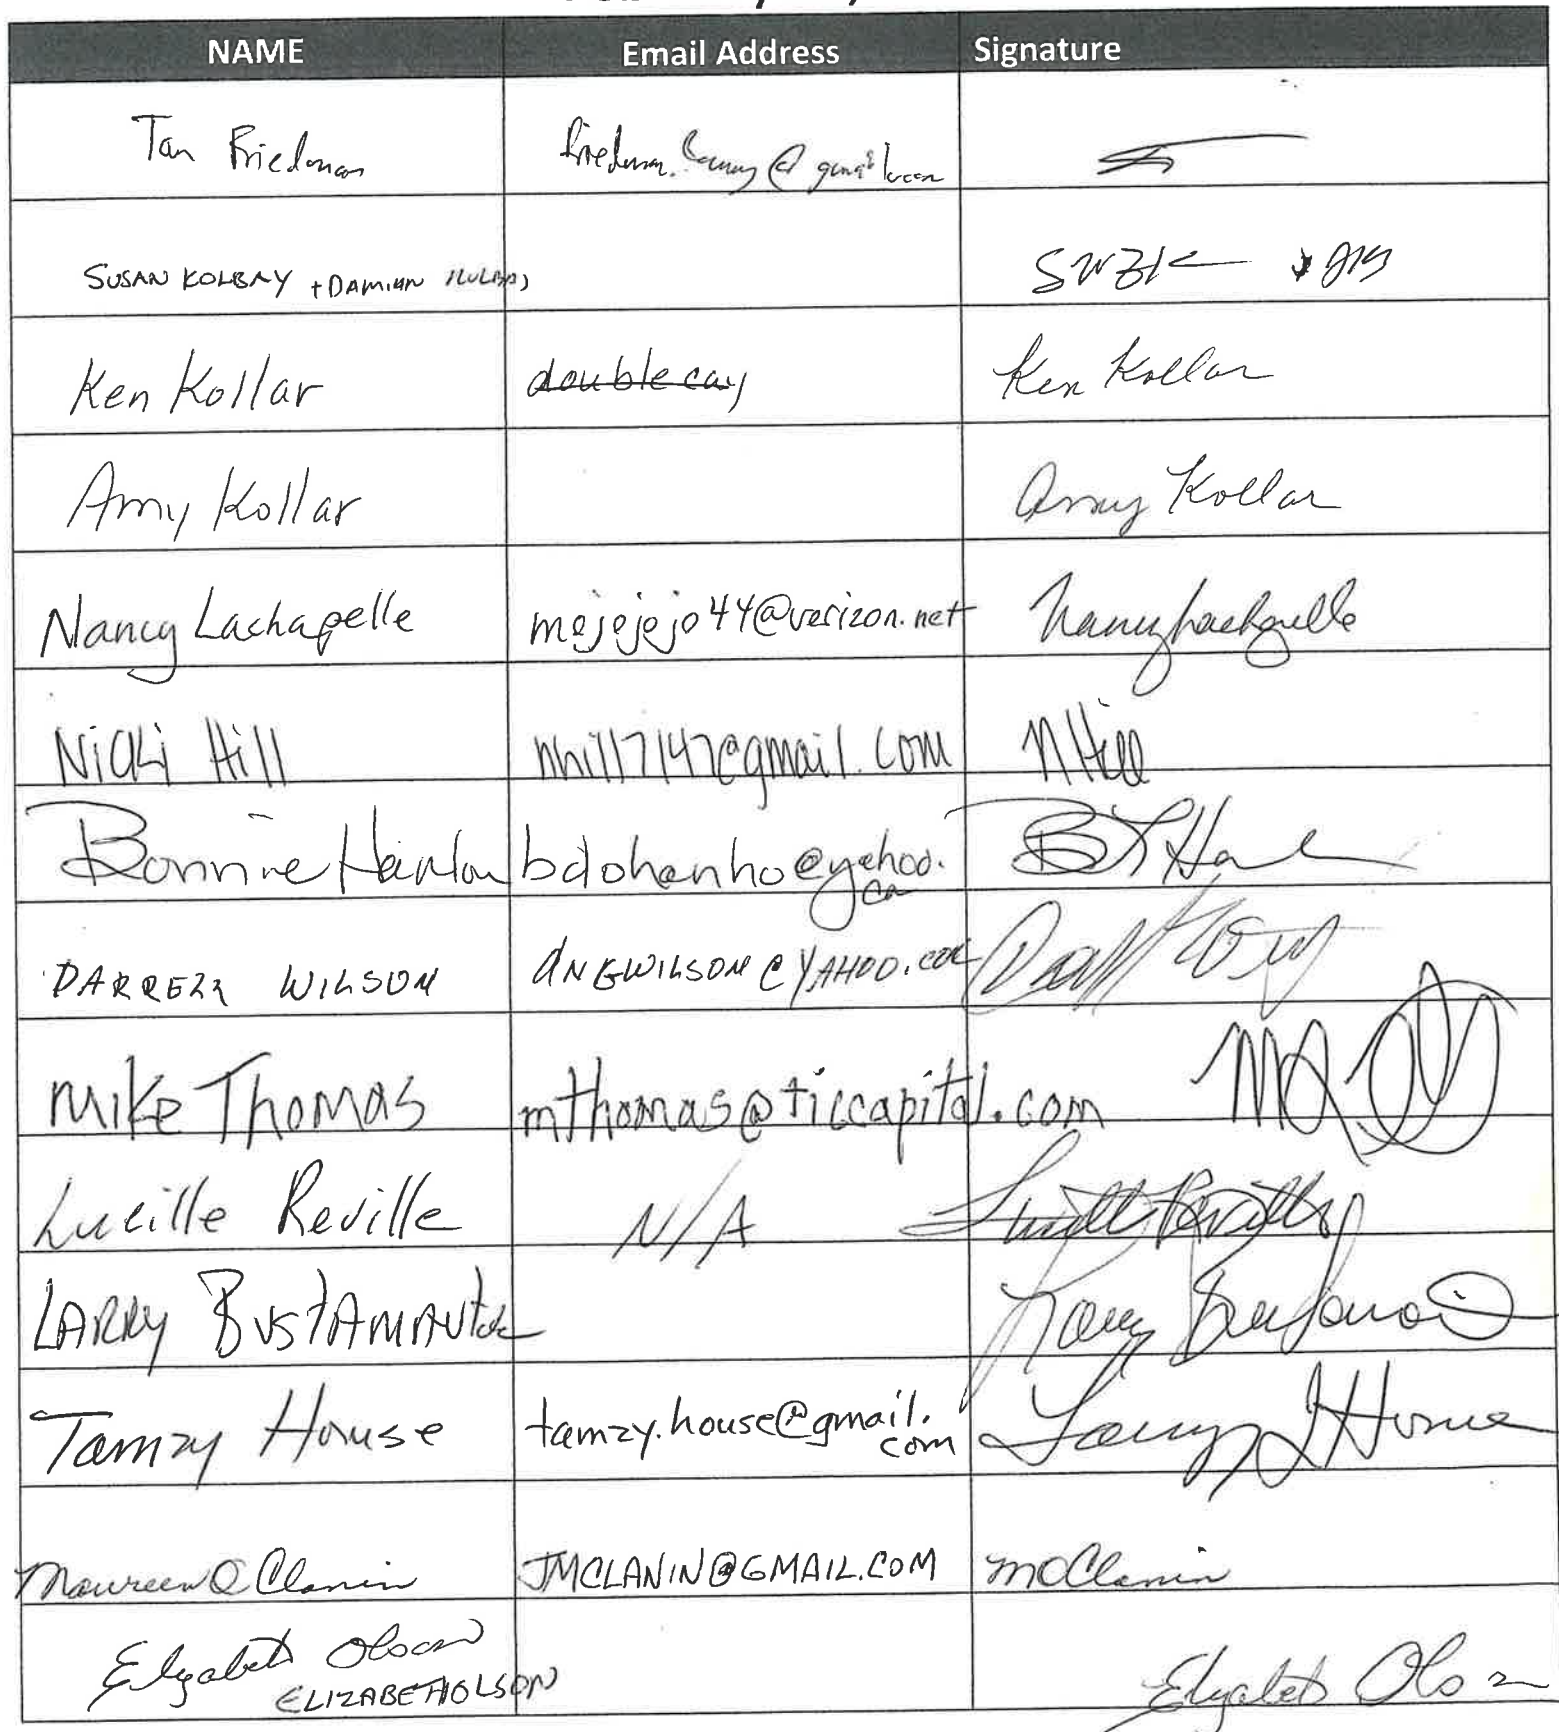 NAME Email Address Signature
Friedman
SUSAN KOLBAY + DAMIAN
Ken Kollar double cay Ken Kollar
Amy Kollar Amy Kollar
Nancy Lachapelle mejejejo44@verizon.net Nancy Lachapelle
Nicki Hill nhill7147@gmail.com N Hill
Bonnie Hanlon bdohanho@yahoo.
ca
DARRELL WILSON ANGWILSON@YAHOO.COM
Mike Thomas mthomas@ticcapital.com
Lucille Reville N/A Lucille Reville
LARRY BUSTAMANTE Larry
Tamzy House tamzy.house@gmail. Tamzy J House
com
Maureen O Clanin JMCLANIN@GMAIL.COM MOClanin
Elizabeth Olson Elizabeth Olson
ELIZABETH OLSON